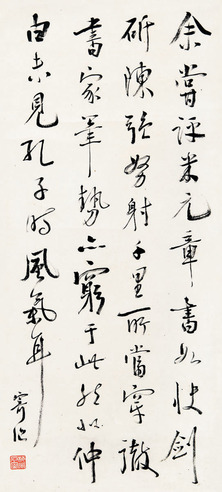 余嘗評米元章書如快劍
斫陣強弩射千里所當穿徹
書家筆勢亦窮于此然似仲
由未見孔子時風氣耳